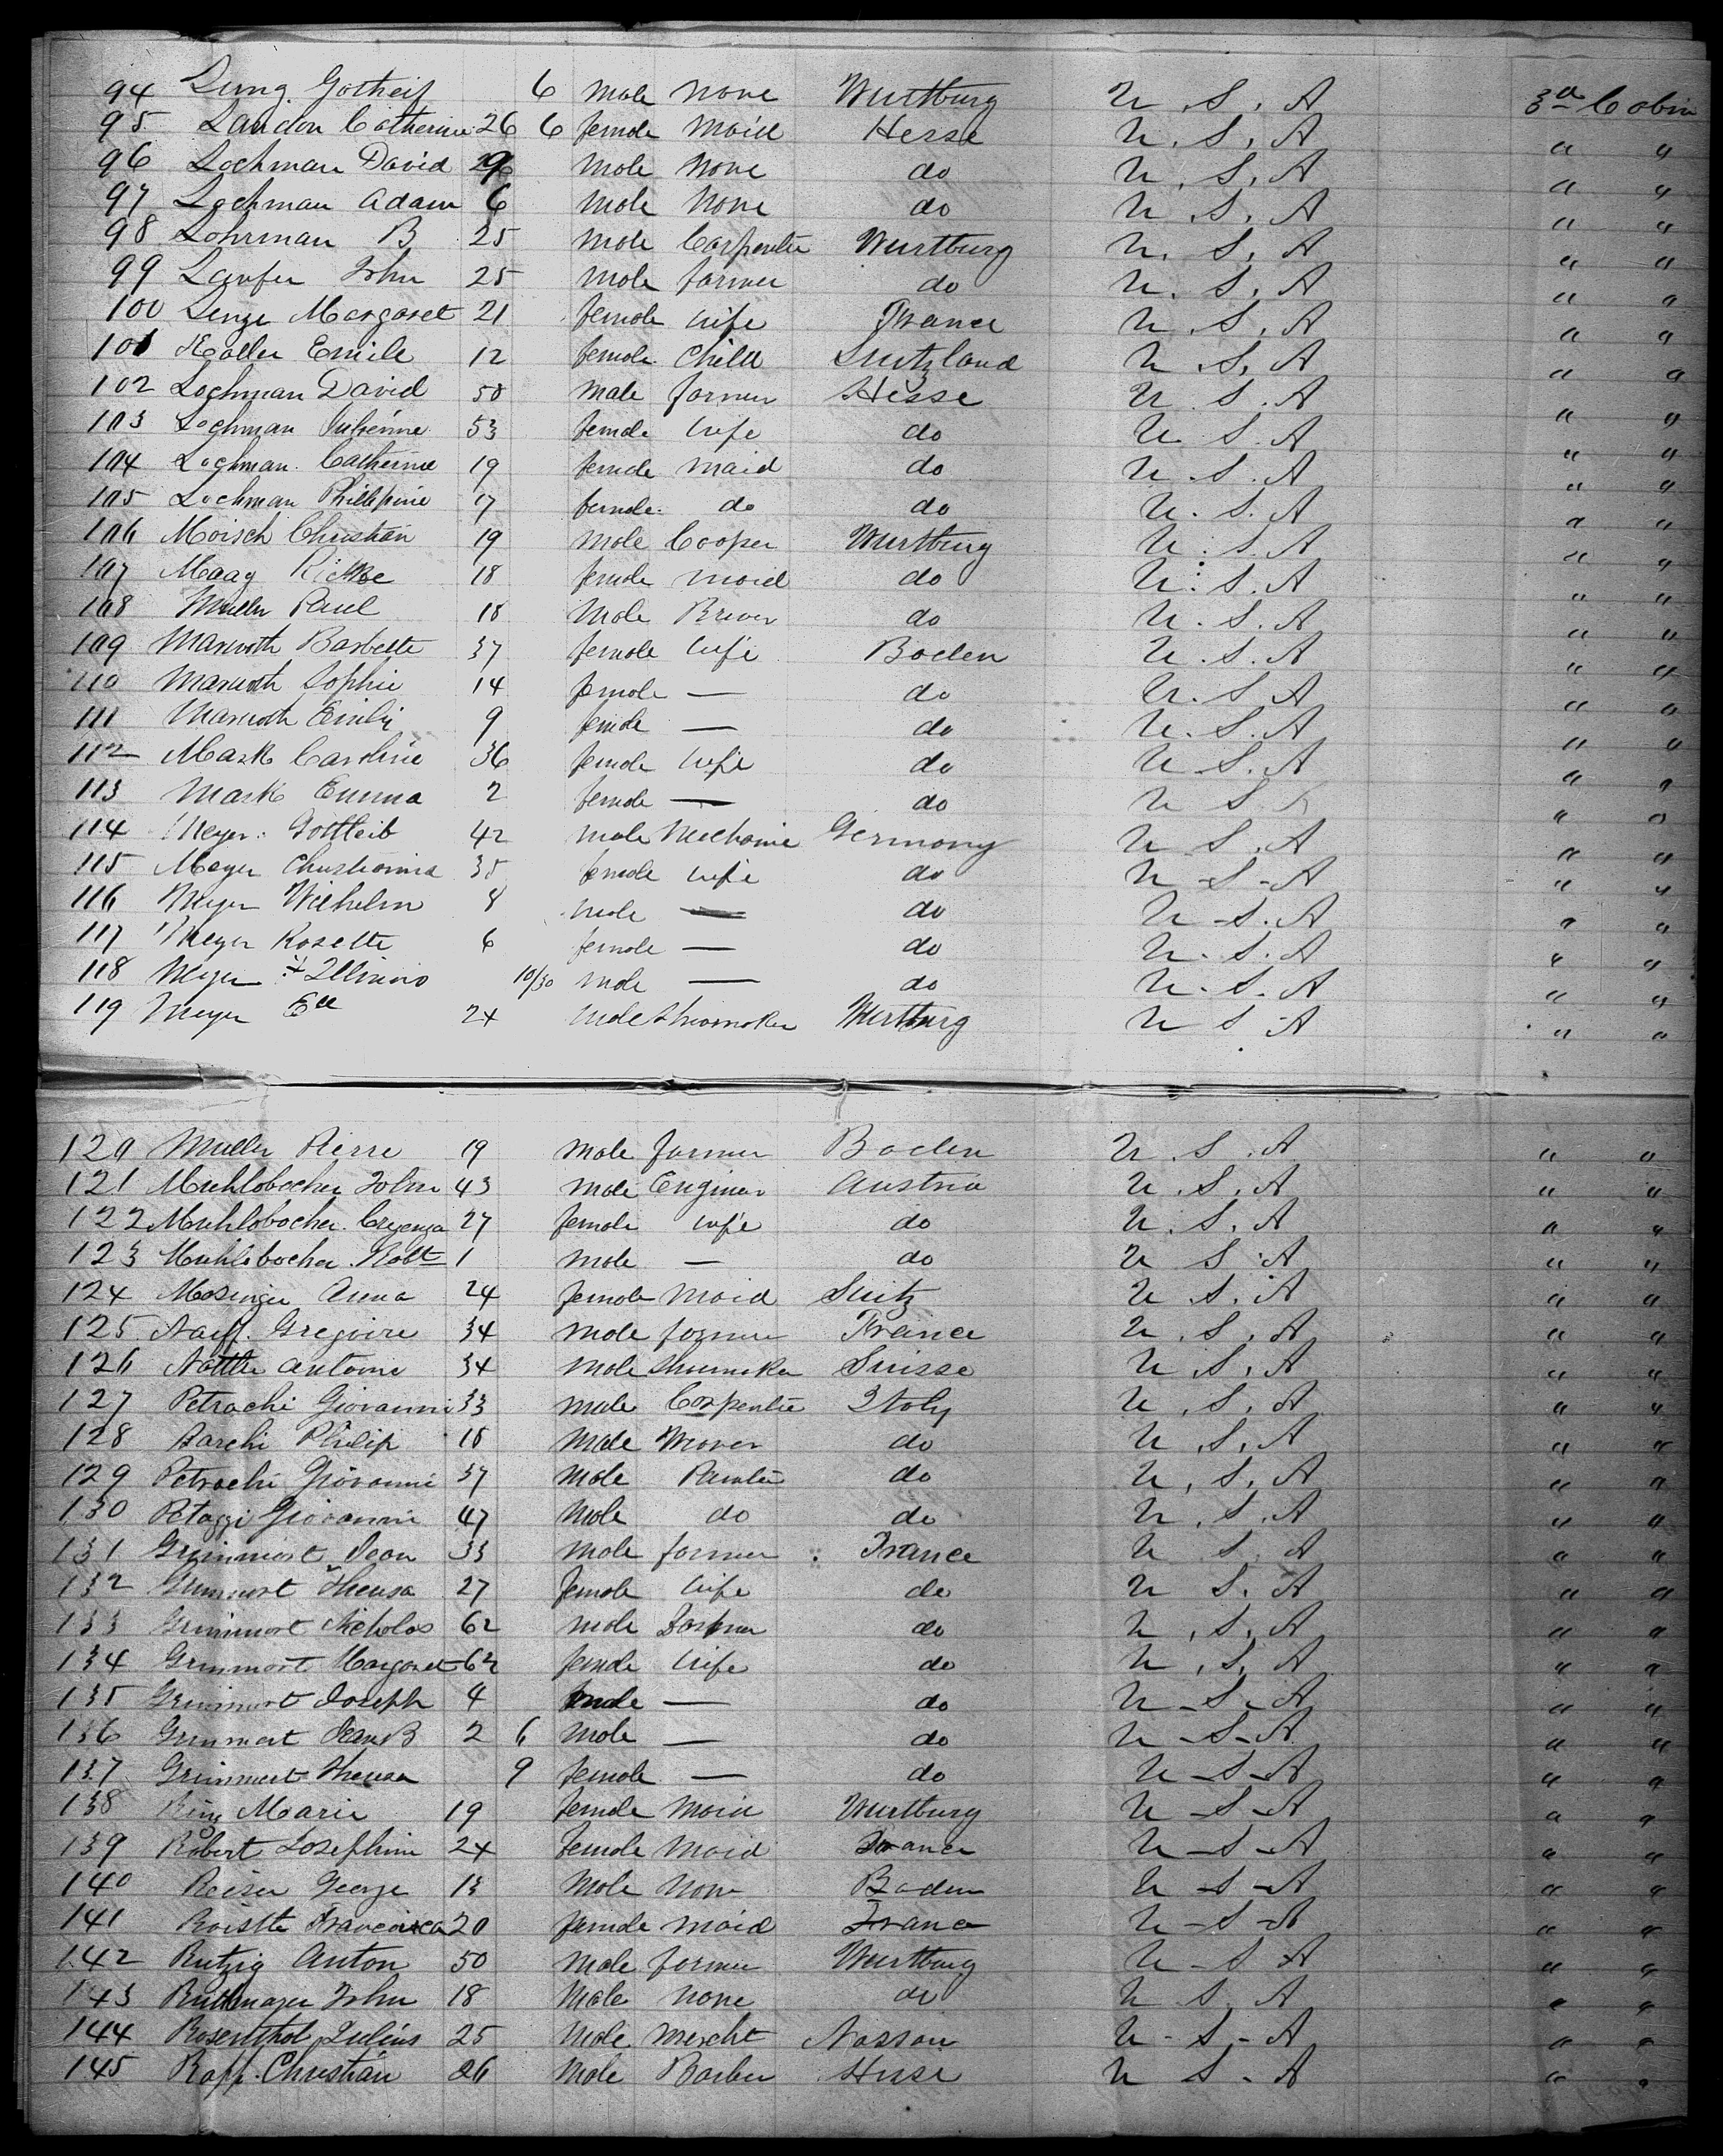 94 Lung Gotheif 6 male none Wurtburg U.S.A 3d Cabin
95 Landon Catherine 26 6 female Maid Hesse U.S.A " "
96 Lochman David male none do U.S.A " "
97 Lochman Adam 6 male none do U.S.A " "
98 Lohrman B 25 male Carpenter Wurtburg U.S.A " "
99 Laufer John 25 male farmer do U.S.A " "
100 Lenze Margaret 21 female wife France U.S.A " "
101 Koller Emile 12 female Child Suitzland U.S.A " "
102 Lochman David 58 male farmer Hesse U.S.A " "
103 Lochman Julienne 53 female wife do U.S.A " "
104 Lochman Catherine 19 female maid do U.S.A " "
105 Lochman Phillipine 17 female do do U.S.A " "
106 Moisch Christian 19 male Cooper Wurtburg U.S.A " "
107 Maag Rickke 18 female maid do U.S.A " "
108 Muller Paul 18 male Brewer do U.S.A " "
109 Maxwoth Barbette 37 female wife Baden U.S.A " "
110 Maxwoth Sophie 14 female — do U.S.A " "
111 Maxwoth Emily 9 female — do U.S.A " "
112 Mark Caroline 36 female wife do U.S.A " "
113 Mark Emma 2 female — do U S A " "
114 Meyer Gottleib 42 male Mechanic Germany U.S.A " "
115 Meyer Christianna 35 female wife do U-S-A " "
116 Meyer Wilhelm 8 male — do U-S.A " "
117 Meyer Rosette 6 female — do U.S.A " "
118 Meyer Illinois 10/30 male — do U.S.A " "
119 Meyer Ed 24 male Shoemaker Wurtburg U S A " "
120 Muller Pierre 19 male farmer Baden U.S.A " "
121 Muhlobacher John 43 male Enginer Austria U.S.A " "
122 Muhlobacher Crezenza 27 female wife do U.S.A " "
123 Muhlobacher Robt 1 male — do U S A " "
124 Messinger Anna 24 female Maid Suitz U.S.A " "
125 Naeff Gregoire 34 male farmer France U.S.A " "
126 Nottle Antoine 34 male Shumaker Suisse U.S.A " "
127 Petrachi Giovanni 33 male Carpenter Italy U.S.A " "
128 Barchi Philip 18 male Mason do U.S.A " "
129 Petrachi Giovanni 37 male Painter do U.S.A " "
130 Petazzi Giovanni 47 male do do U.S.A " "
131 Grimmort Jean 33 male farmer France U S A " "
132 Grimmort Theresa 27 female wife do U S.A " "
133 Grimmort Nicholas 62 male Farmer do U.S.A " "
134 Grimmort Margaret 62 female wife do U.S.A " "
135 Grimmort Joseph 4 male — do U-S-A " "
136 Grimmort Jean B 2 6 male — do U-S-A " "
137 Grimmert Theresa 9 female — do U-S-A " "
138 Marie 19 female Maid Wurtburg U-S-A " "
139 Robert Josephine 24 female Maid France U-S-A " "
140 Reiser George 13 male None Baden U-S-A " "
141 Roistte Francoisca 20 female maid France U-S-A " "
142 Rutzig Anton 50 male farmer Wurtburg U-S A " "
143 Ruthmayer John 18 male none do U S.A " "
144 Rosenthal Julius 25 male mercht Nassau U-S-A " "
145 Rapp Christian 26 male Barber Hesse U S-A " "